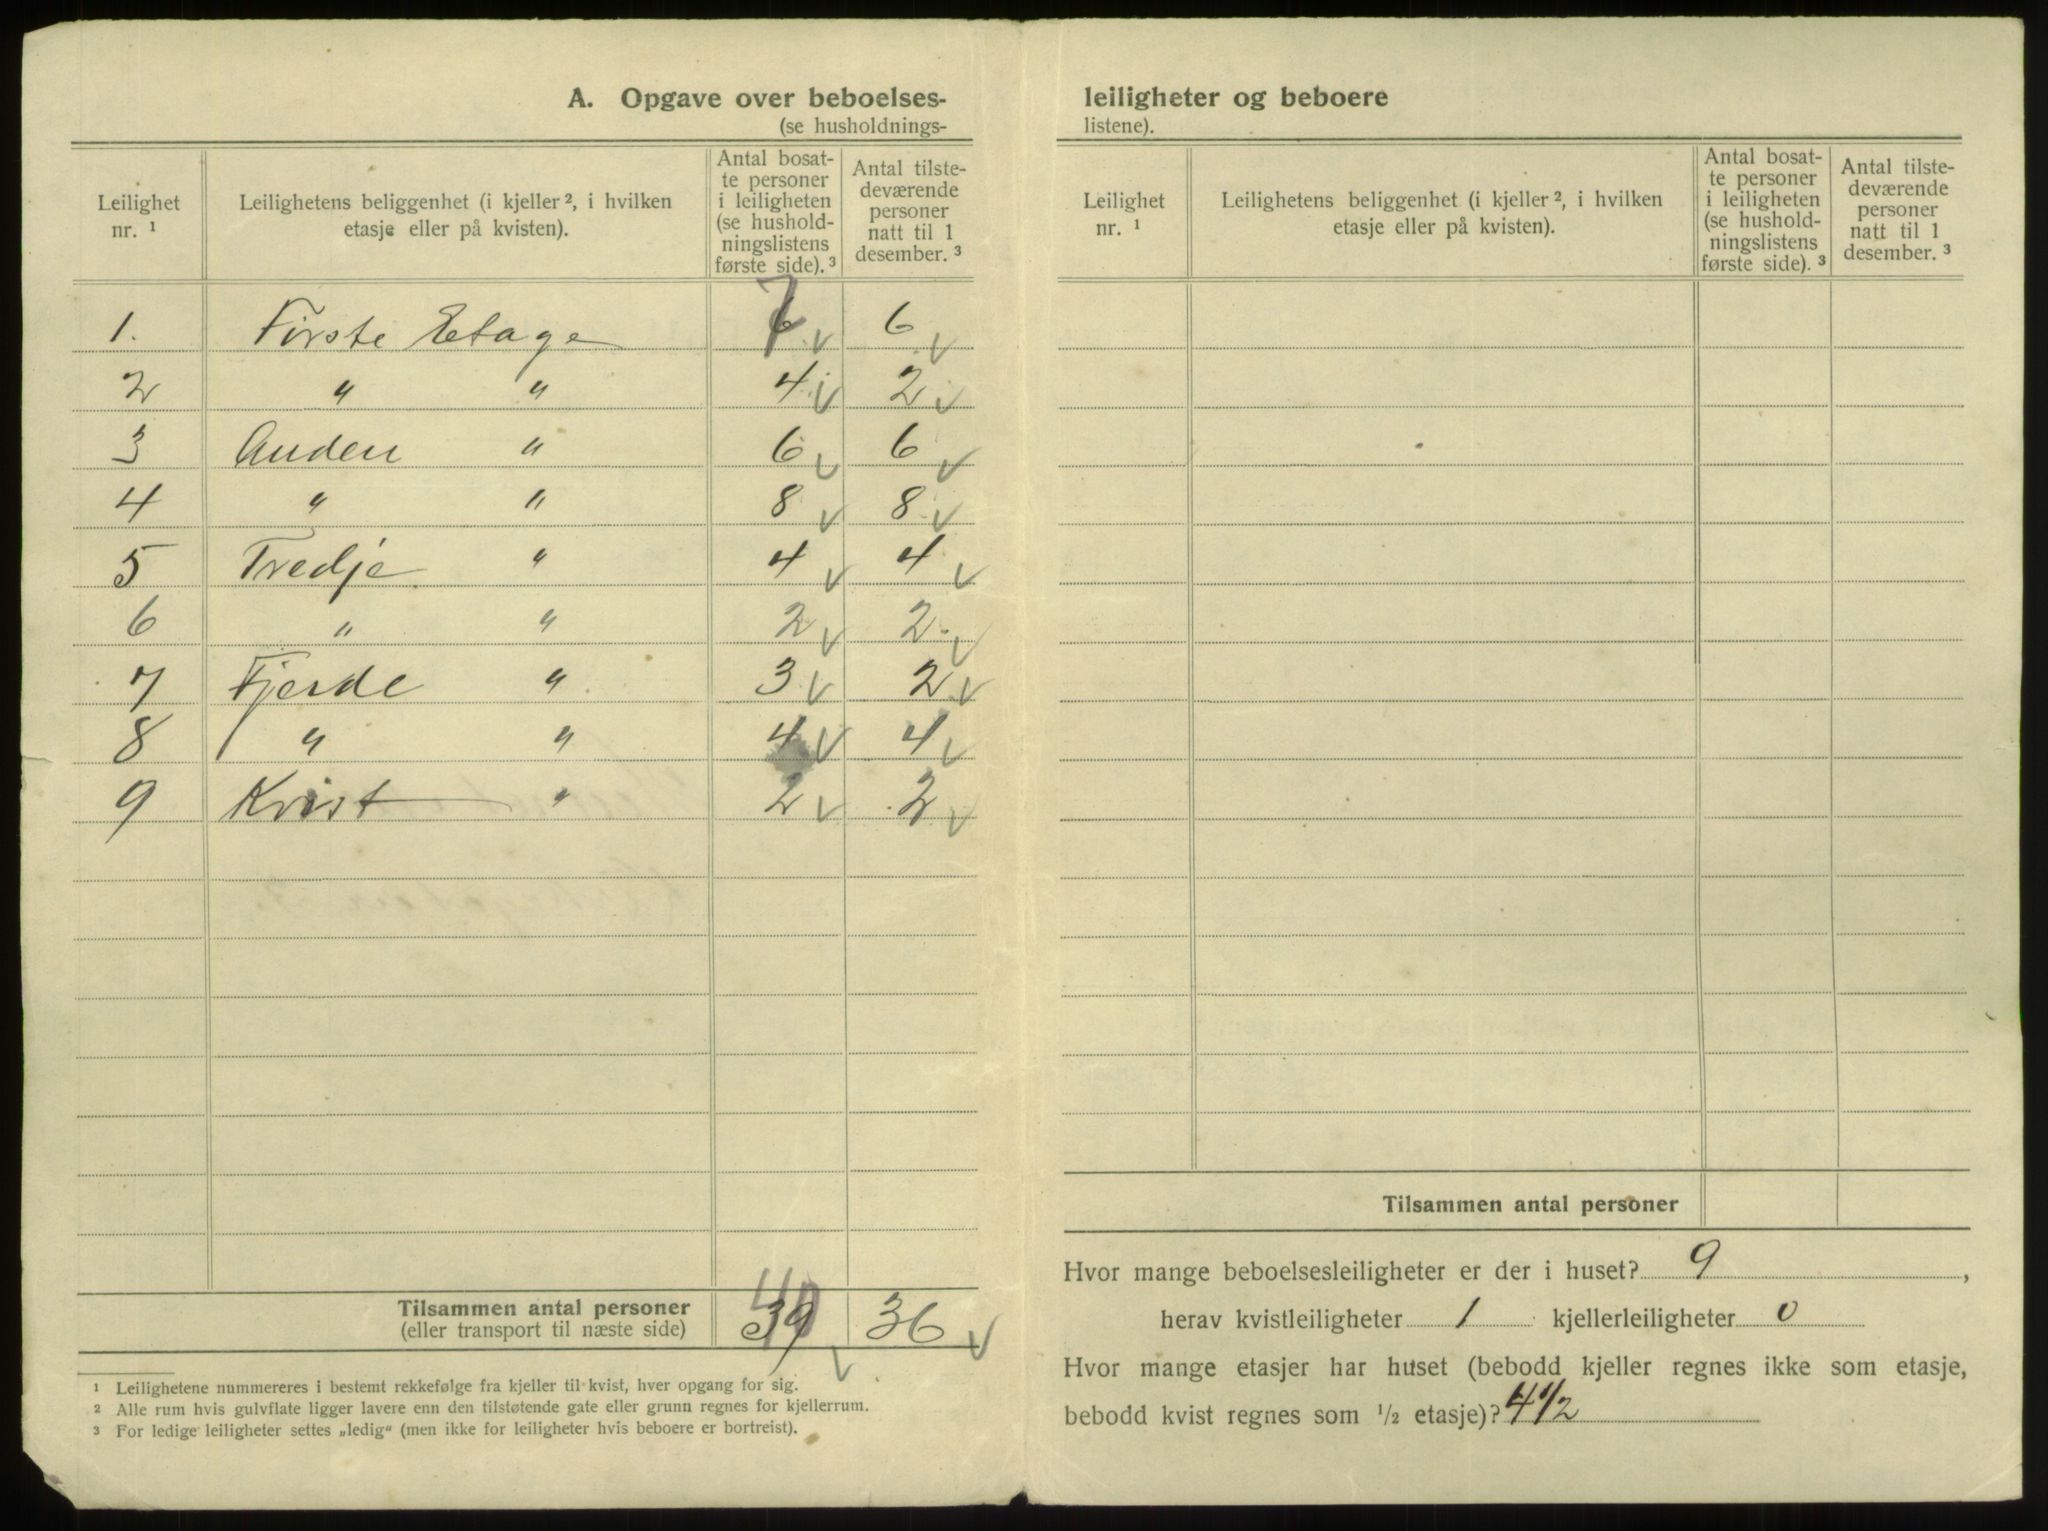 A. Opgave over beboelses-
(se husholdnings-
Leilighet nr. ¹
Leilighetens beliggenhet (i kjeller ², i hvilken etasje eller på kvisten).
Antal bosatte personer i leiligheten (se husholdningslistens første side). ³
Antal tilstedeværende personer natt til 1 desember. ³
1. Første Etage 6 7 6
2 " " 4 2
3 Anden " 6 6
4 " " 8 8
5 Tredje " 4 4
6 " " 2 2
7 Fjerde " 3 2
8 " " 4 4
9 Kvist " 2 2
Tilsammen antal personer 39 40 36
(eller transport til næste side)
¹ Leilighetene nummereres i bestemt rekkefølge fra kjeller til kvist, hver opgang for sig.
² Alle rum hvis gulvflate ligger lavere enn den tilstøtende gate eller grunn regnes for kjellerrum.
³ For ledige leiligheter settes „ledig" (men ikke for leiligheter hvis beboere er bortreist).
leiligheter og beboere
listene).
Leilighet nr. ¹
Leilighetens beliggenhet (i kjeller ², i hvilken etasje eller på kvisten).
Antal bosatte personer i leiligheten (se husholdningslistens første side). ³
Antal tilstedeværende personer natt til 1 desember. ³
Tilsammen antal personer
Hvor mange beboelsesleiligheter er der i huset? 9,
herav kvistleiligheter 1 kjellerleiligheter 0
Hvor mange etasjer har huset (bebodd kjeller regnes ikke som etasje,
bebodd kvist regnes som ½ etasje)? 4½